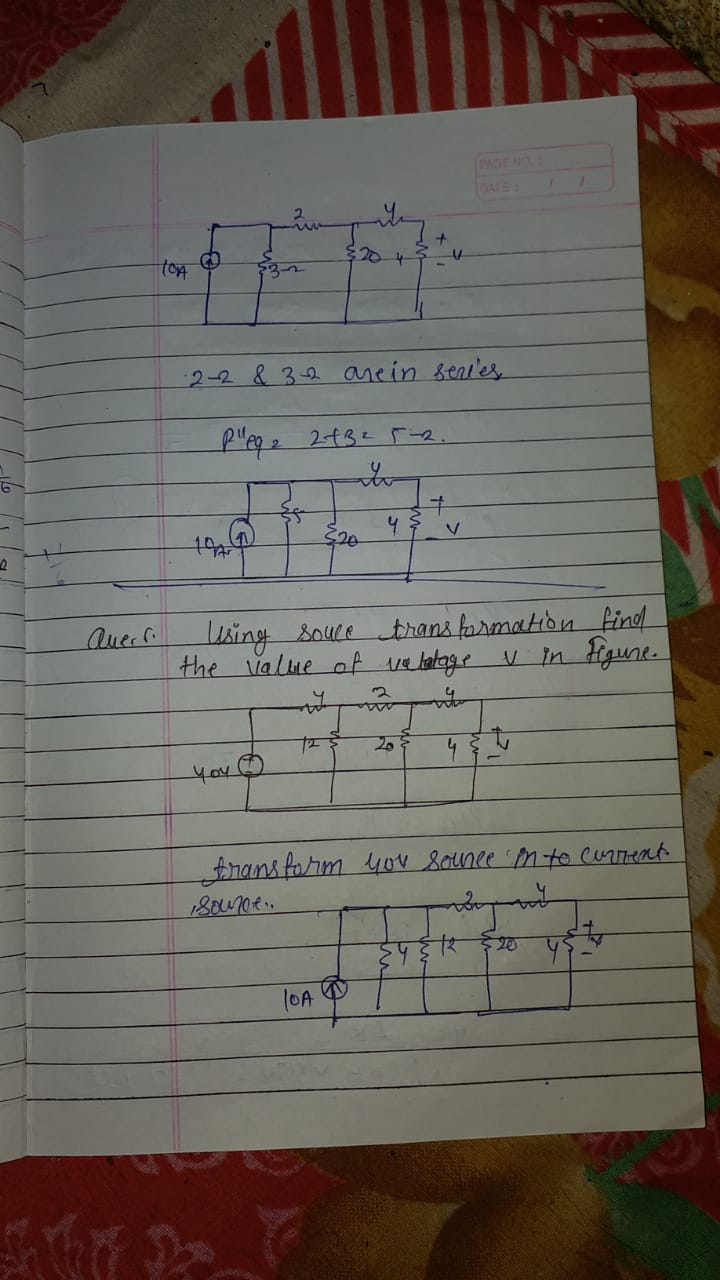 PAGE NO. :
DATE : / /
2 4
10A 3Ω 20 4 + - V
2Ω & 3Ω are in series
R"eq = 2+3 = 5Ω.
4
10A 5 20 4 + - V
Ques. Using souce transformation find
the value of valotage V in Figure.
4 2 4
40V 12 20 4 + - V
transform 40V source in to current
source..
2 4
10A 4 12 20 4 + - V